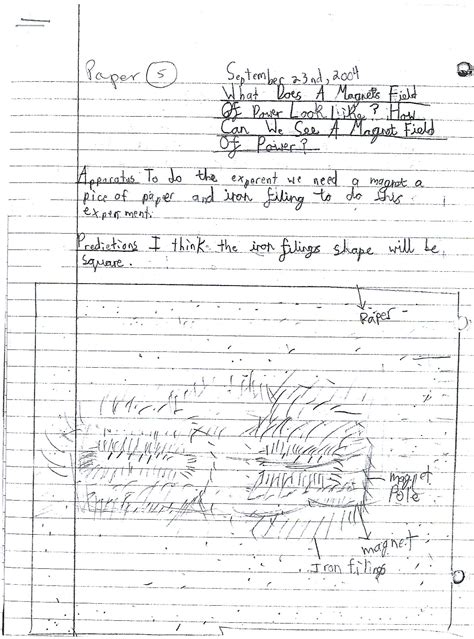 Paper 5
September 23nd, 2004
What Does A Magnets Field
Of Power Look Like? How
Can We See A Magnet Field
Of Power?
Apparatus To do the experent we need a magnet a
pice of paper and iron filing to do this
experiment.
Predictions I think the iron filings shape will be
square.
Paper
magnet
Pole
magnet
Iron filings